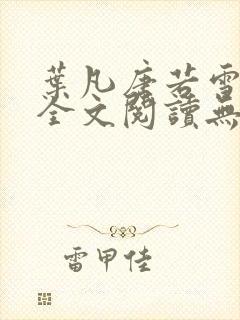 葉凡唐若雪
全文閱讀無
雷甲佳